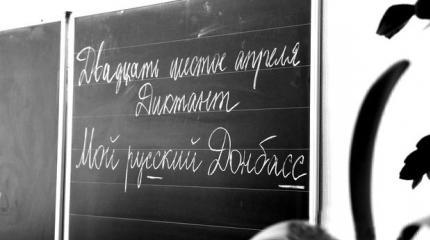 Двадцать шестое апреля
Диктант
Мой русский Донбасс